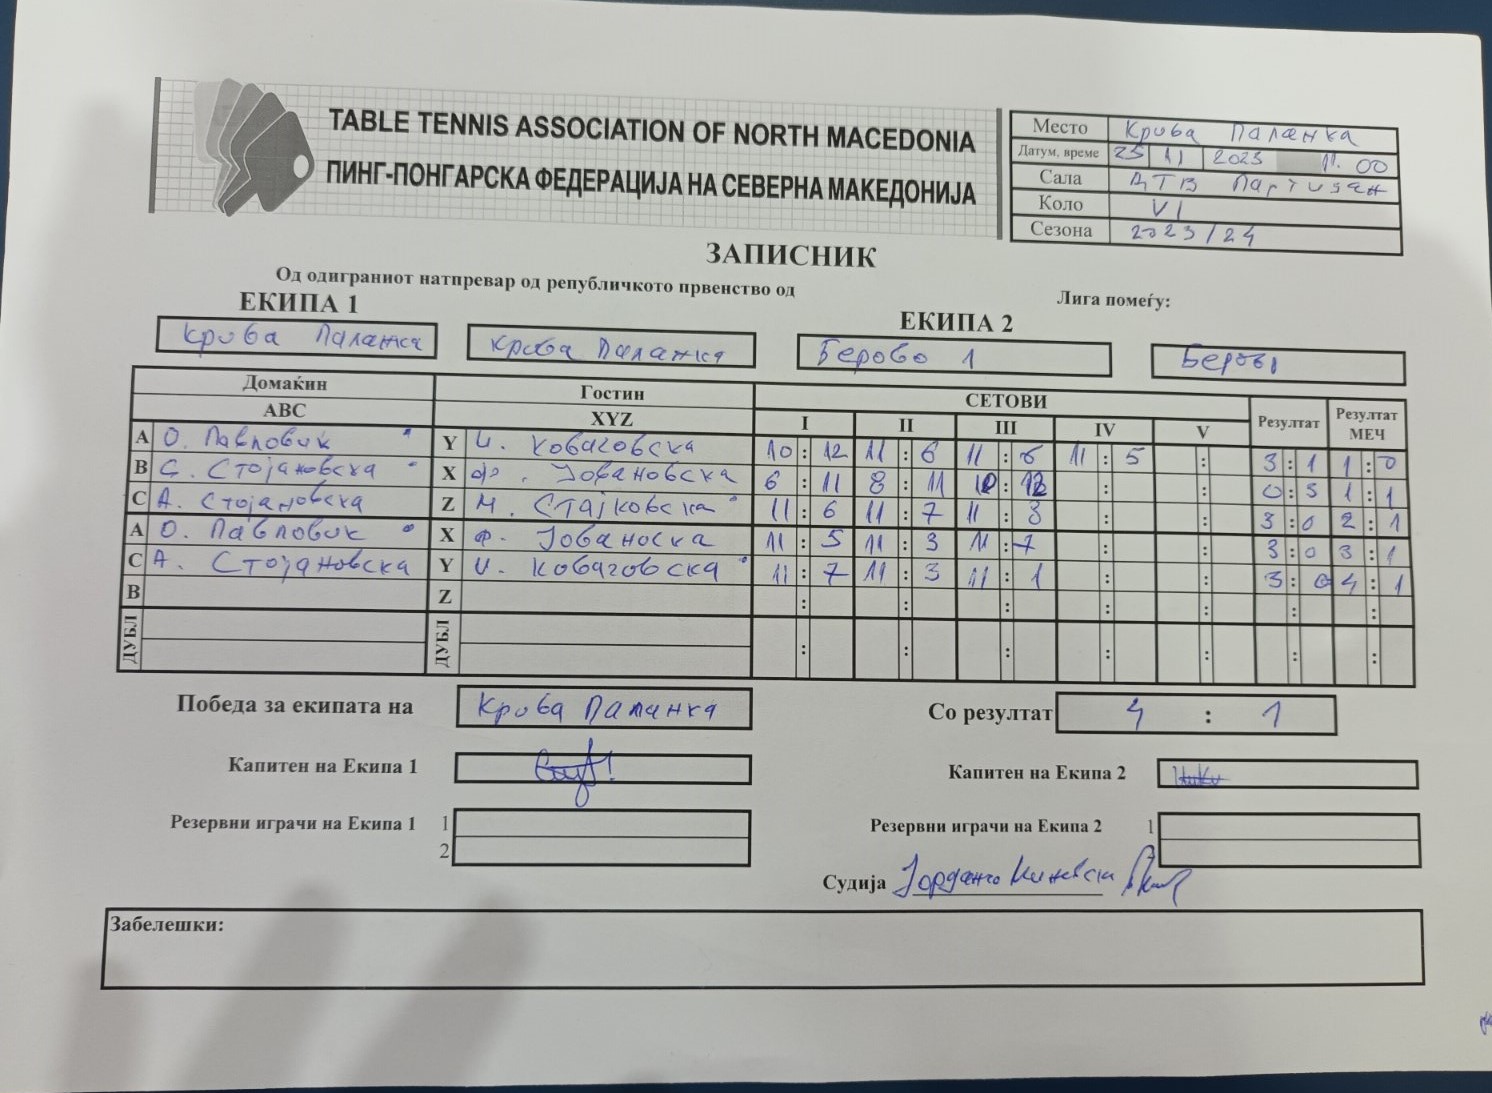 TABLE TENNIS ASSOCIATION OF NORTH MACEDONIA
ПИНГ-ПОНГАРСКА ФЕДЕРАЦИЈА НА СЕВЕРНА МАКЕДОНИЈА
Место Крива Паланка
Датум, време 25 11 2023 11.00
Сала ДТВ Партизан
Коло VI
Сезона 2023/24
ЗАПИСНИК
Од одиграниот натпревар од републичкото првенство од
Лига помеѓу:
ЕКИПА 1 ЕКИПА 2
Крива Паланка Крива Паланка Берово 1 Берово
Домаќин Гостин СЕТОВИ Резултат Резултат МЕЧ
ABC XYZ I II III IV V
A О. Павловиќ Y И. Коваговска 10 : 12 11 : 6 11 : 6 11 : 5 : 3 : 1 1 : 0
B С. Стојановска X Ф. Јовановска 6 : 11 8 : 11 10 : 12 : : 0 : 3 1 : 1
C А. Стојановска Z М. Стајковска 11 : 6 11 : 7 11 : 3 : : 3 : 0 2 : 1
A О. Павловиќ X Ф. Јованоска 11 : 5 11 : 3 11 : 7 : : 3 : 0 3 : 1
C А. Стојановска Y И. Коваговска 11 : 7 11 : 3 11 : 1 : : 3 : 0 4 : 1
B Z : : : : : : :
ДУБЛ ДУБЛ : : : : : : :
Победа за екипата на Крива Паланка Со резултат 4 : 1
Капитен на Екипа 1 Капитен на Екипа 2
Резервни играчи на Екипа 1 1 Резервни играчи на Екипа 2 1
2
Судија Јорданчо
Забелешки: